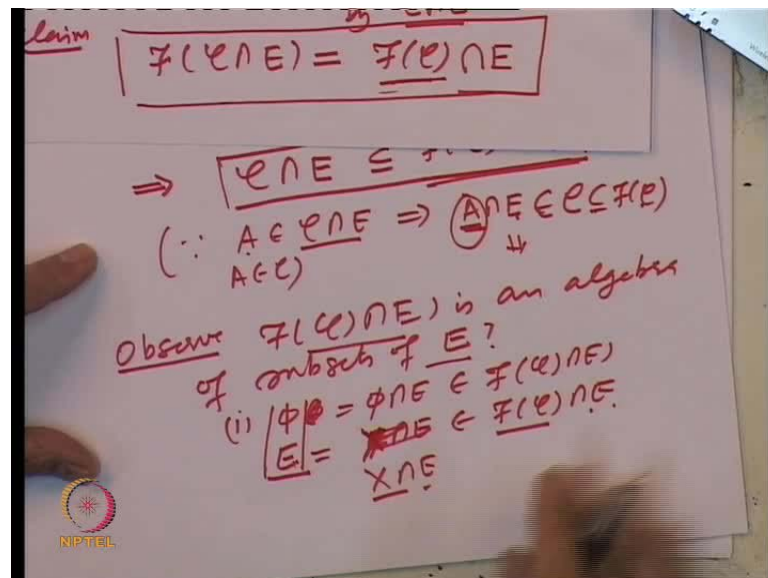 Claim
by
F(C∩E) = F(C)∩E
⇒ C∩E ⊆
(∵ A ∈ C∩E ⇒ A∩E ∈ C ⊆ F(C)
A ∈ C) ⇓
Observe F(C)∩E) is an algebra
of subsets of E?
(i) ϕ = ϕ∩E ∈ F(C)∩E)
E = ∈ F(C)∩E.
X∩E
NPTEL